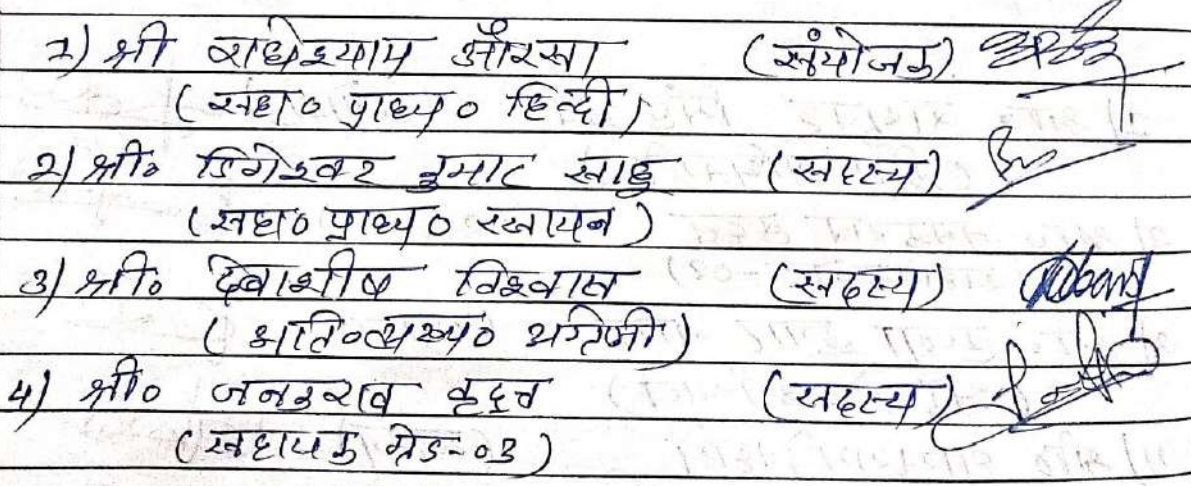 1) श्री राधेश्याम औरसा (संयोजक)
(सहा० प्राध्य० हिन्दी)
2) श्री० डिगेश्वर कुमार साहु (सदस्य)
(सहा० प्राध्य० रसायन)
3) श्री० देवाशीष विश्वास (सदस्य)
(अति०व्याख्या० अंग्रेजी)
4) श्री० जनकराव (सदस्य)
(सहायक ग्रेड-03)